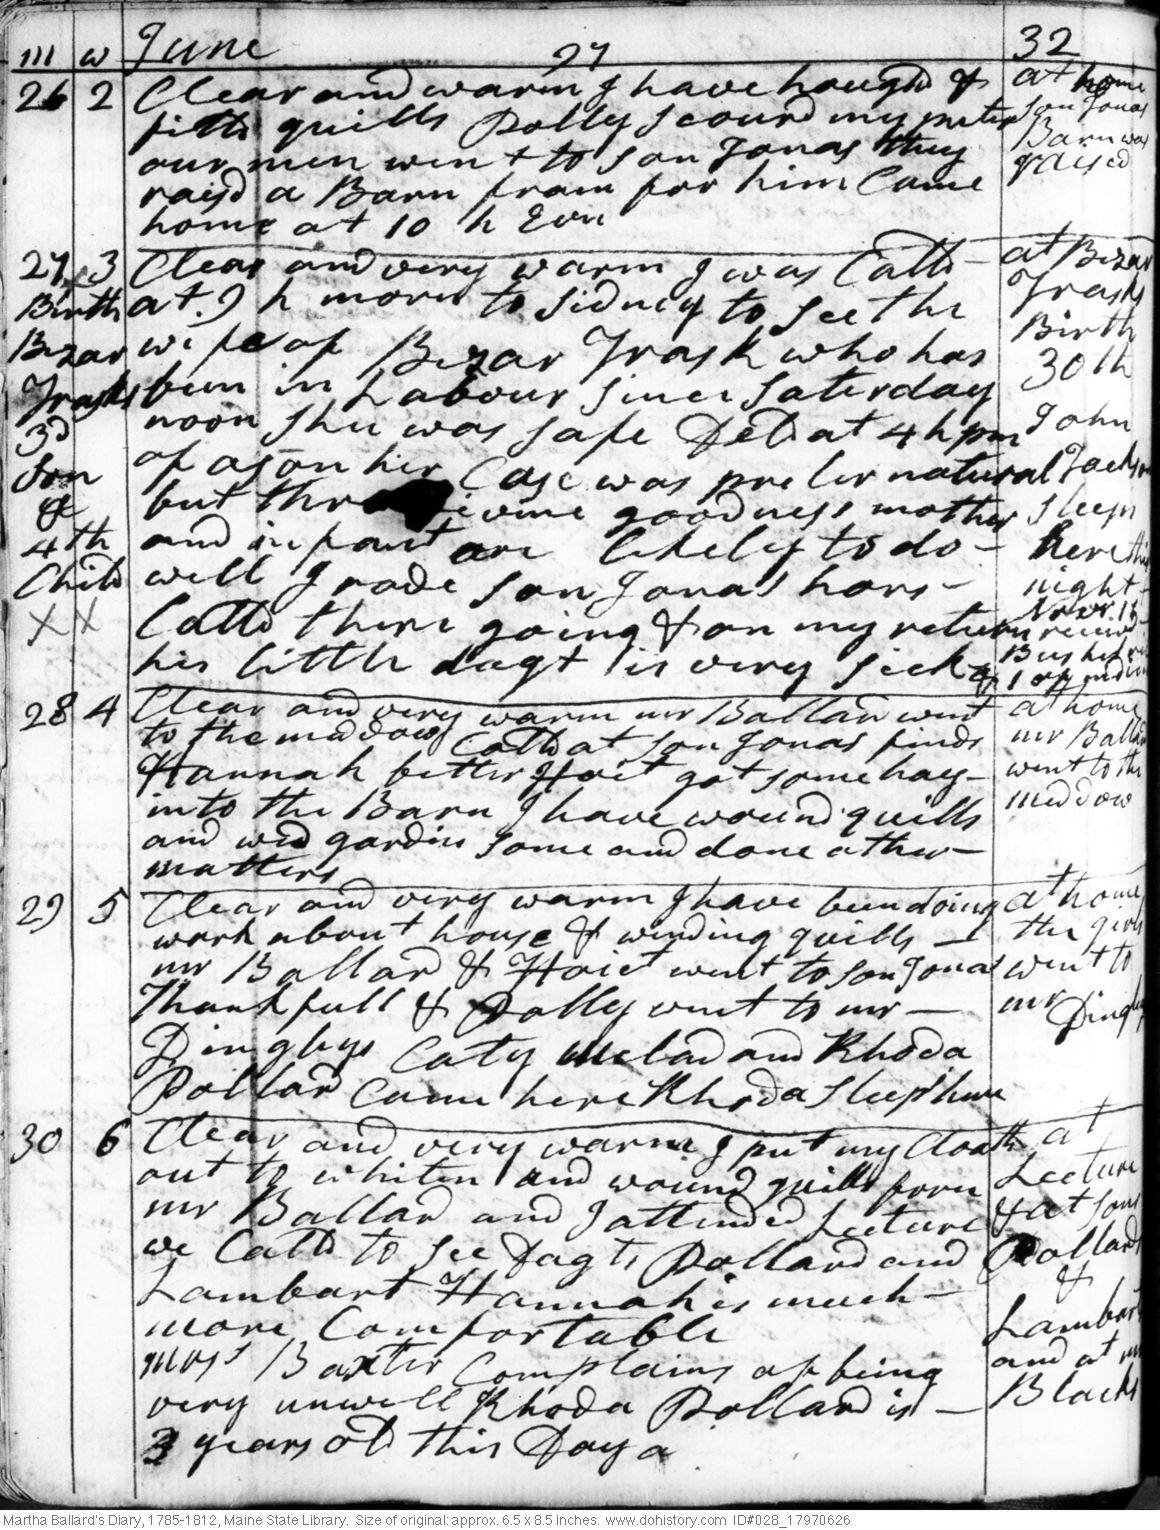 m w June 27 32
26 2 Clear and warm I have houghd &
fild quills Dolly Scourd my puter
our men went to son Jonas they
raisd a Barn fram for him Came
home at 10 h Evn
at home
son Jonas
Barn was
raised
27 3 Clear and very warm I was Calld -
at 9 h morn to Sidney to see the
wife of Bezar Trask who has
been in Labour since saturday
noon Shee was safe Deld at 4 h pm
of a son her Case was preternatural
but thro Divine goodness mother
and infant are likely to do -
well I rode son Jonas hors -
Calld there going & on my return
his little dagt is very sick
Birth
Bezar
Trasks
3d
Son
&
4th
Child
X X
at Bezar
Trasks
Birth
30th
John
Jackson
sleeps
here this
night
receivd
Bushel
28 4 Clear and very warm mr Ballard went
to the meddow Calld at son Jonas finds
Hannah better Hoit got some hay -
into the Barn I have wound quills
and wed gardin some and done other -
matters
at home
mr Ballard
went to the
meddow
29 5 Clear and very warm I have been doing
work about house & winding quills -
mr Ballard & Hoit went to son Jonas
Thankfull & Dolly went to mr -
Dinglys Caty Melad and Rhoda
Pollard Came here Rhoda Sleeps here
at home
the girls
went to
mr Dingly
30 6 Clear and very warm I put my Cloath
out to whiten and wound quills forn
mr Ballard and I attended Lecture
we Calld to see Dagts Pollard and
Lambart Hannah is much -
more Comfortable
mrs Baxter Complains of being
very unwell Rhoda Pollard is -
3 years old this Day a
at
Lecture
& at sons
Pollards
&
Lambart
and at mr
Blacks
Martha Ballard's Diary, 1785-1812, Maine State Library. Size of original: approx. 6.5 x 8.5 inches. www.dohistory.com ID#028_17970626